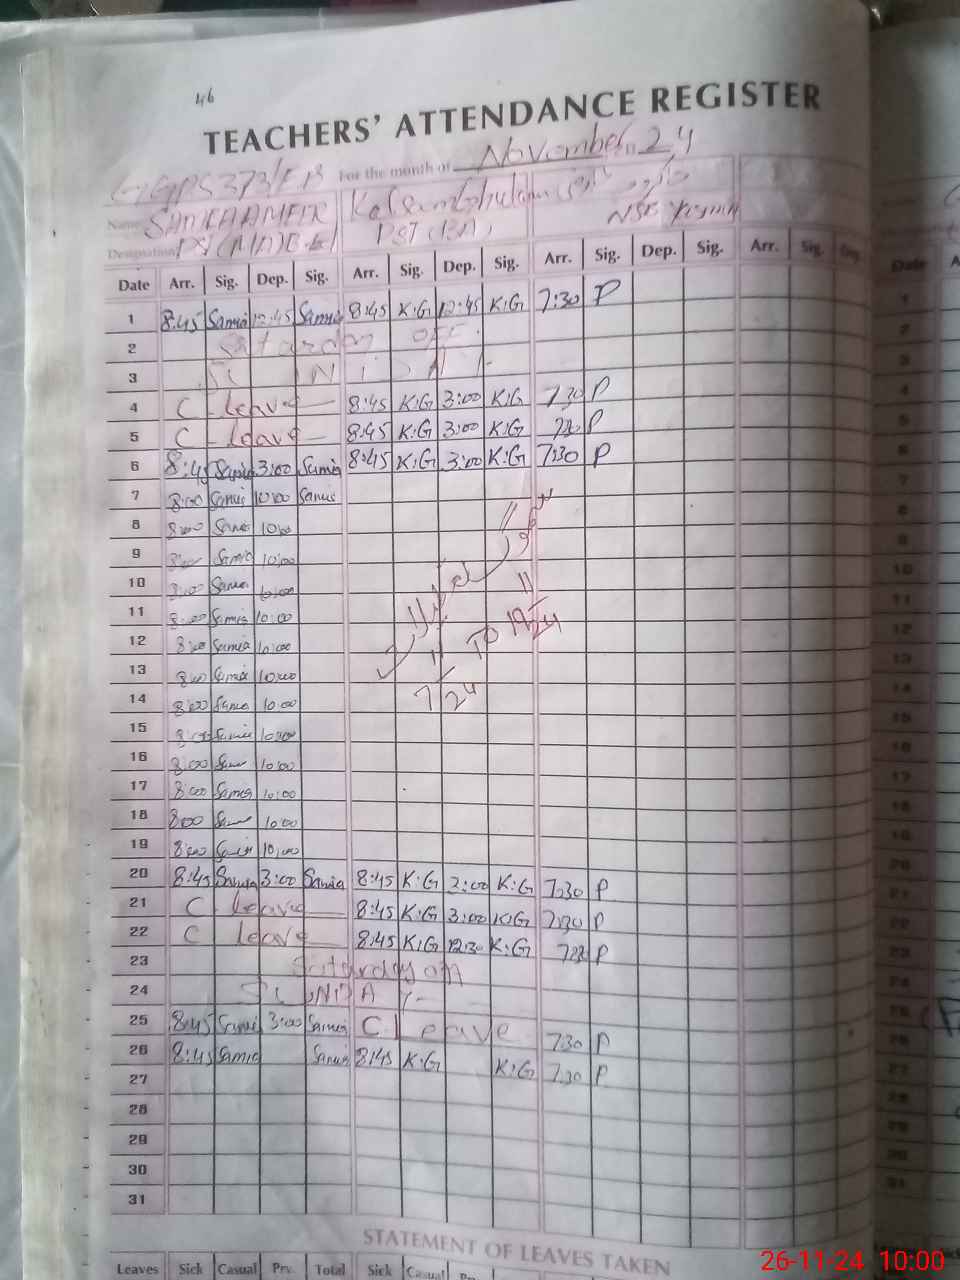 46
TEACHERS' ATTENDANCE REGISTER
For the month of November 24
GGPS 373/EB
Name SAMIA AMEER Kalsoom Ghulam
Designation PST (BA)
Date Arr. Sig. Dep. Sig. Arr. Sig. Dep. Sig. Arr. Sig. Dep. Sig. Arr. Sig. Dep.
1 8:45 Samia 12:45 Samia 8:45 K:G 12:45 K:G 7:30 P
2 Saturday OFF
3 SUNDAY
4 C-leave 8:45 K:G 3:00 K:G 7:30 P
5 C-leave 8:45 K:G 3:00 K:G 7:30 P
6 8:45 Samia 3:00 Samia 8:45 K:G 3:00 K:G 7:30 P
7 8:00 Samia 10:00 Samia
8 8:00 Samia 10:00
9 8:00 Samia 10:00
10 8:00 Samia 10:00
11 8:00 Samia 10:00
12 8:00 Samia 10:00
13 8:00 Samia 10:00
14 8:00 Samia 10:00
15 8:00 Samia 10:00
16 8:00 Samia 10:00
17 8:00 Samia 10:00
18 8:00 Samia 10:00
19 8:00 Samia 10:00
7/11/24 TO 19/11/24
20 8:45 Samia 3:00 Samia 8:45 K:G 2:00 K:G 7:30 P
21 C-leave 8:45 K:G 3:00 K:G 7:30 P
22 C leave 8:45 K:G 12:30 K:G 7:30 P
23 Saturday off
24 SUNDAY
25 8:45 Samia 3:00 Samia C leave 7:30 P
26 8:45 Samia Samia 8:45 K:G K:G 7:30 P
27
28
29
30
31
STATEMENT OF LEAVES TAKEN
Leaves Sick Casual Prv. Total Sick Casual
26-11-24 10:00